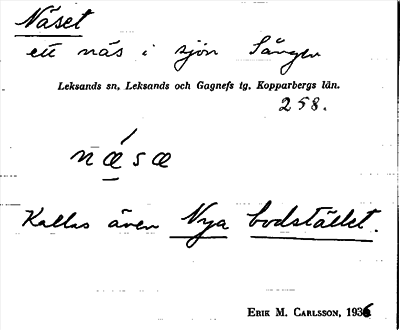 Näset
ett näs i sjön
Leksands sn, Leksands och Gagnefs tg, Kopparbergs län.
258.
nǽ̱sæ
Kallas även Nya bodstället.
ERIK M. CARLSSON, 1936